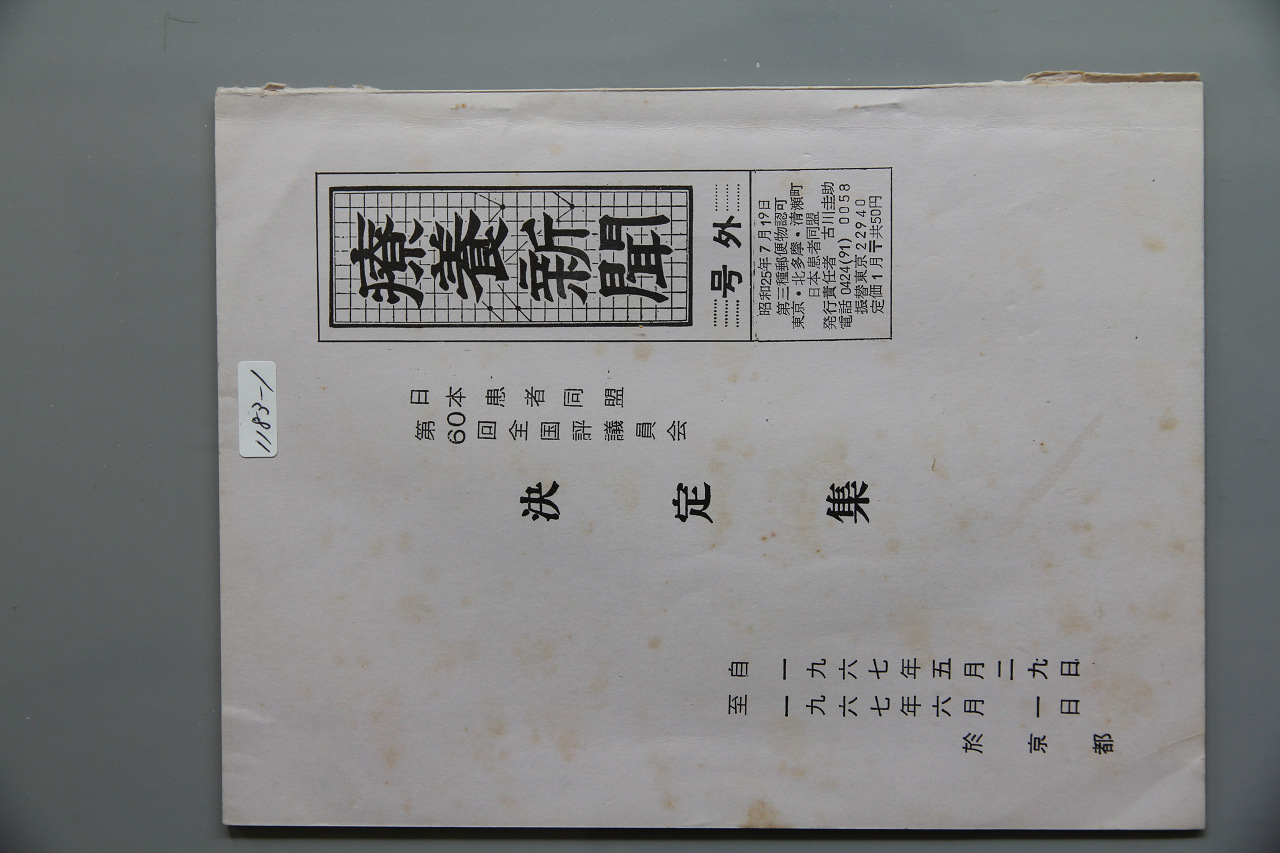 療養新聞
号外
昭和25年7月19日
第三種郵便物認可
東京・北多摩・清瀬町
日本患者同盟
発行責任者 古川圭助
電話0424(91)0058
振替東京22940
定価1月〒共50円
日本患者同盟
第60回全国評議員会
決定集
自 一九六七年五月二九日
至 一九六七年六月一日
於京都
1183-1